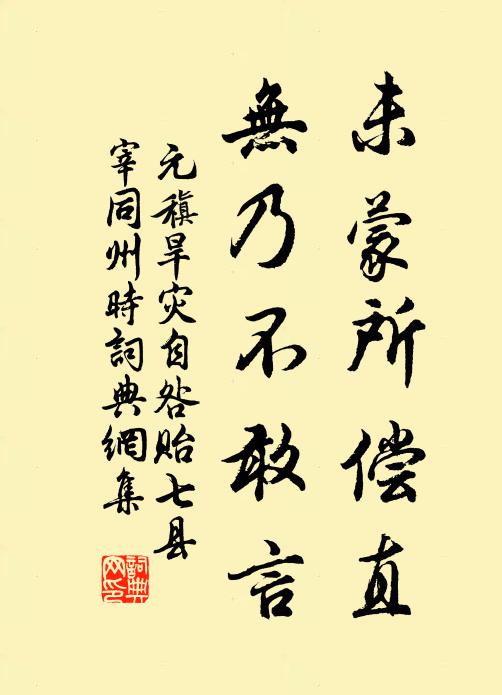 未蒙所偿直
無乃不敢言
元稹旱灾自咎贻七县
宰同州時詞典網集
詞典
网印